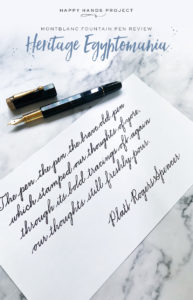 HAPPY HANDS PROJECT
MONTBLANC FOUNTAIN PEN REVIEW
Heritage Egyptomania
The pen the pen the brave old pen
which stamped our thoughts of yore,
through its bold tracings oft again
our thoughts still freshly pour.
Platt Rogers Spencer